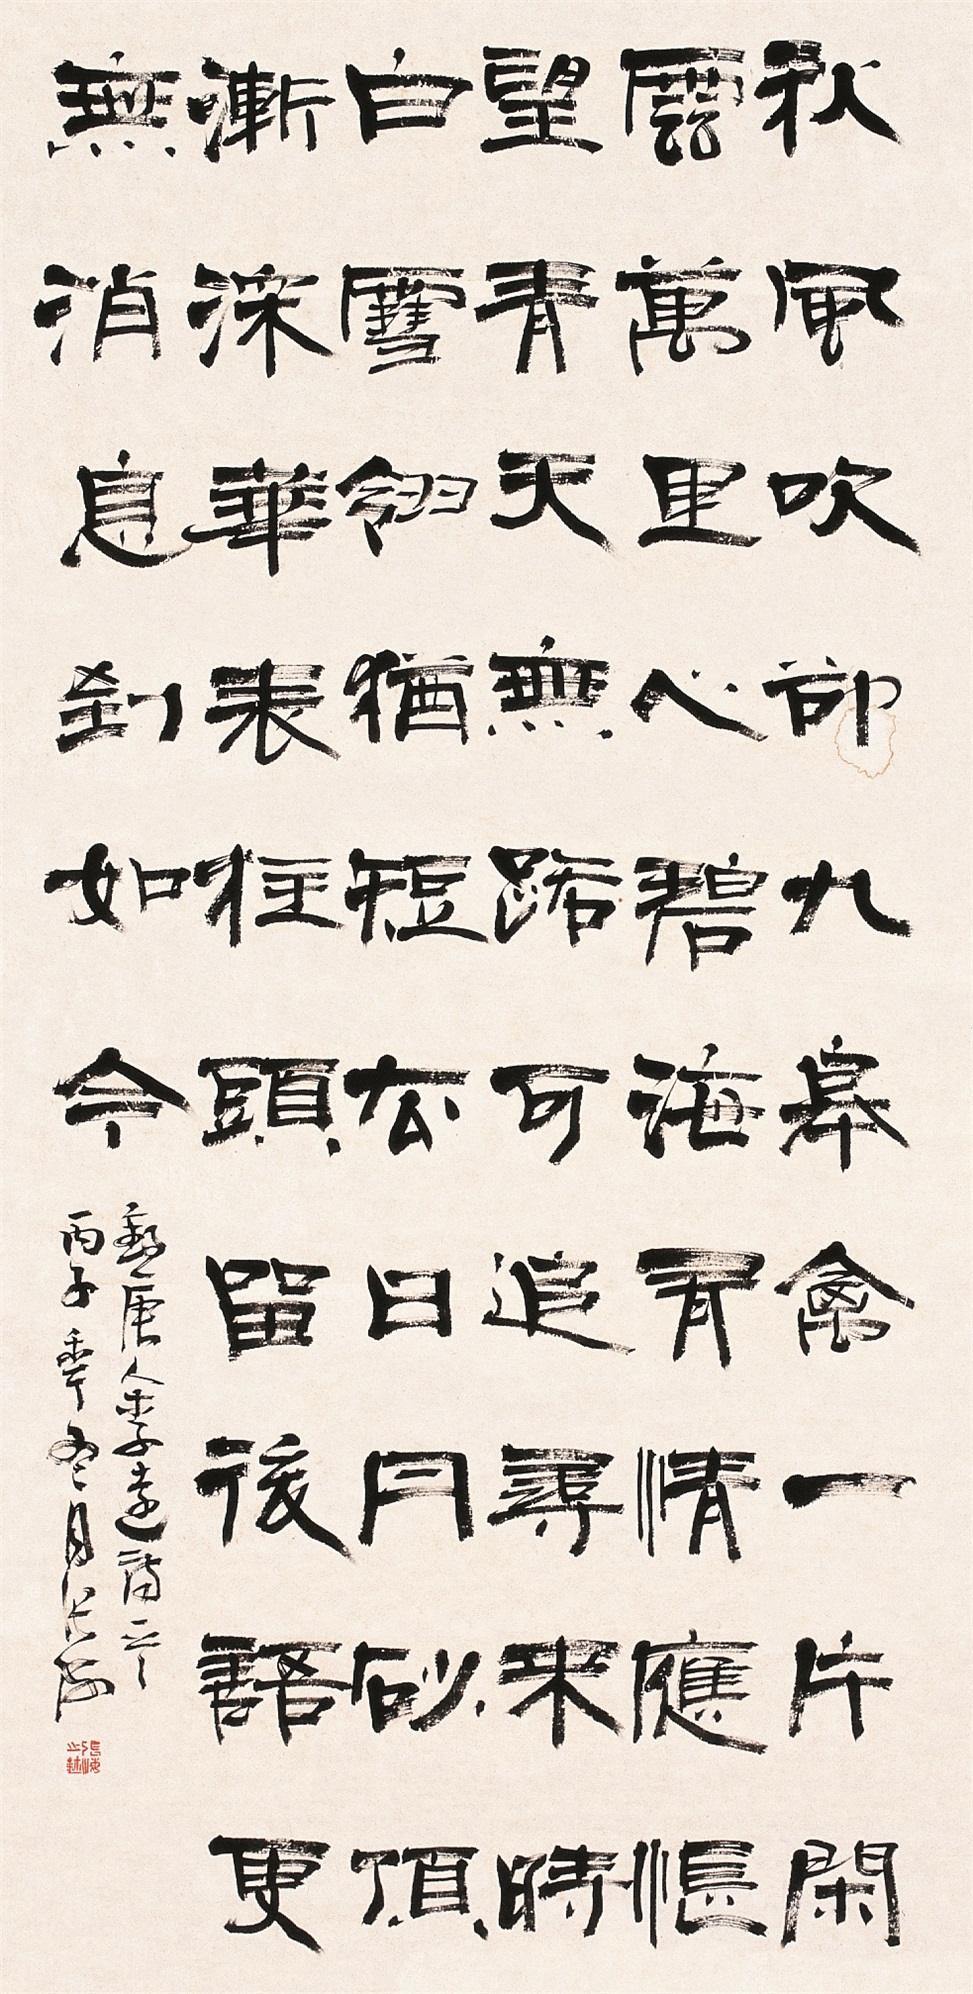 秋風吹却九皋禽一片閑
雲萬里心碧海有情應悵
望青天無路可追尋来時
白雪翎猶短去日丹砂頂
漸深華表柱頭留後語更
無消息到如今
唐人李遠詩一
丙子季冬月張海